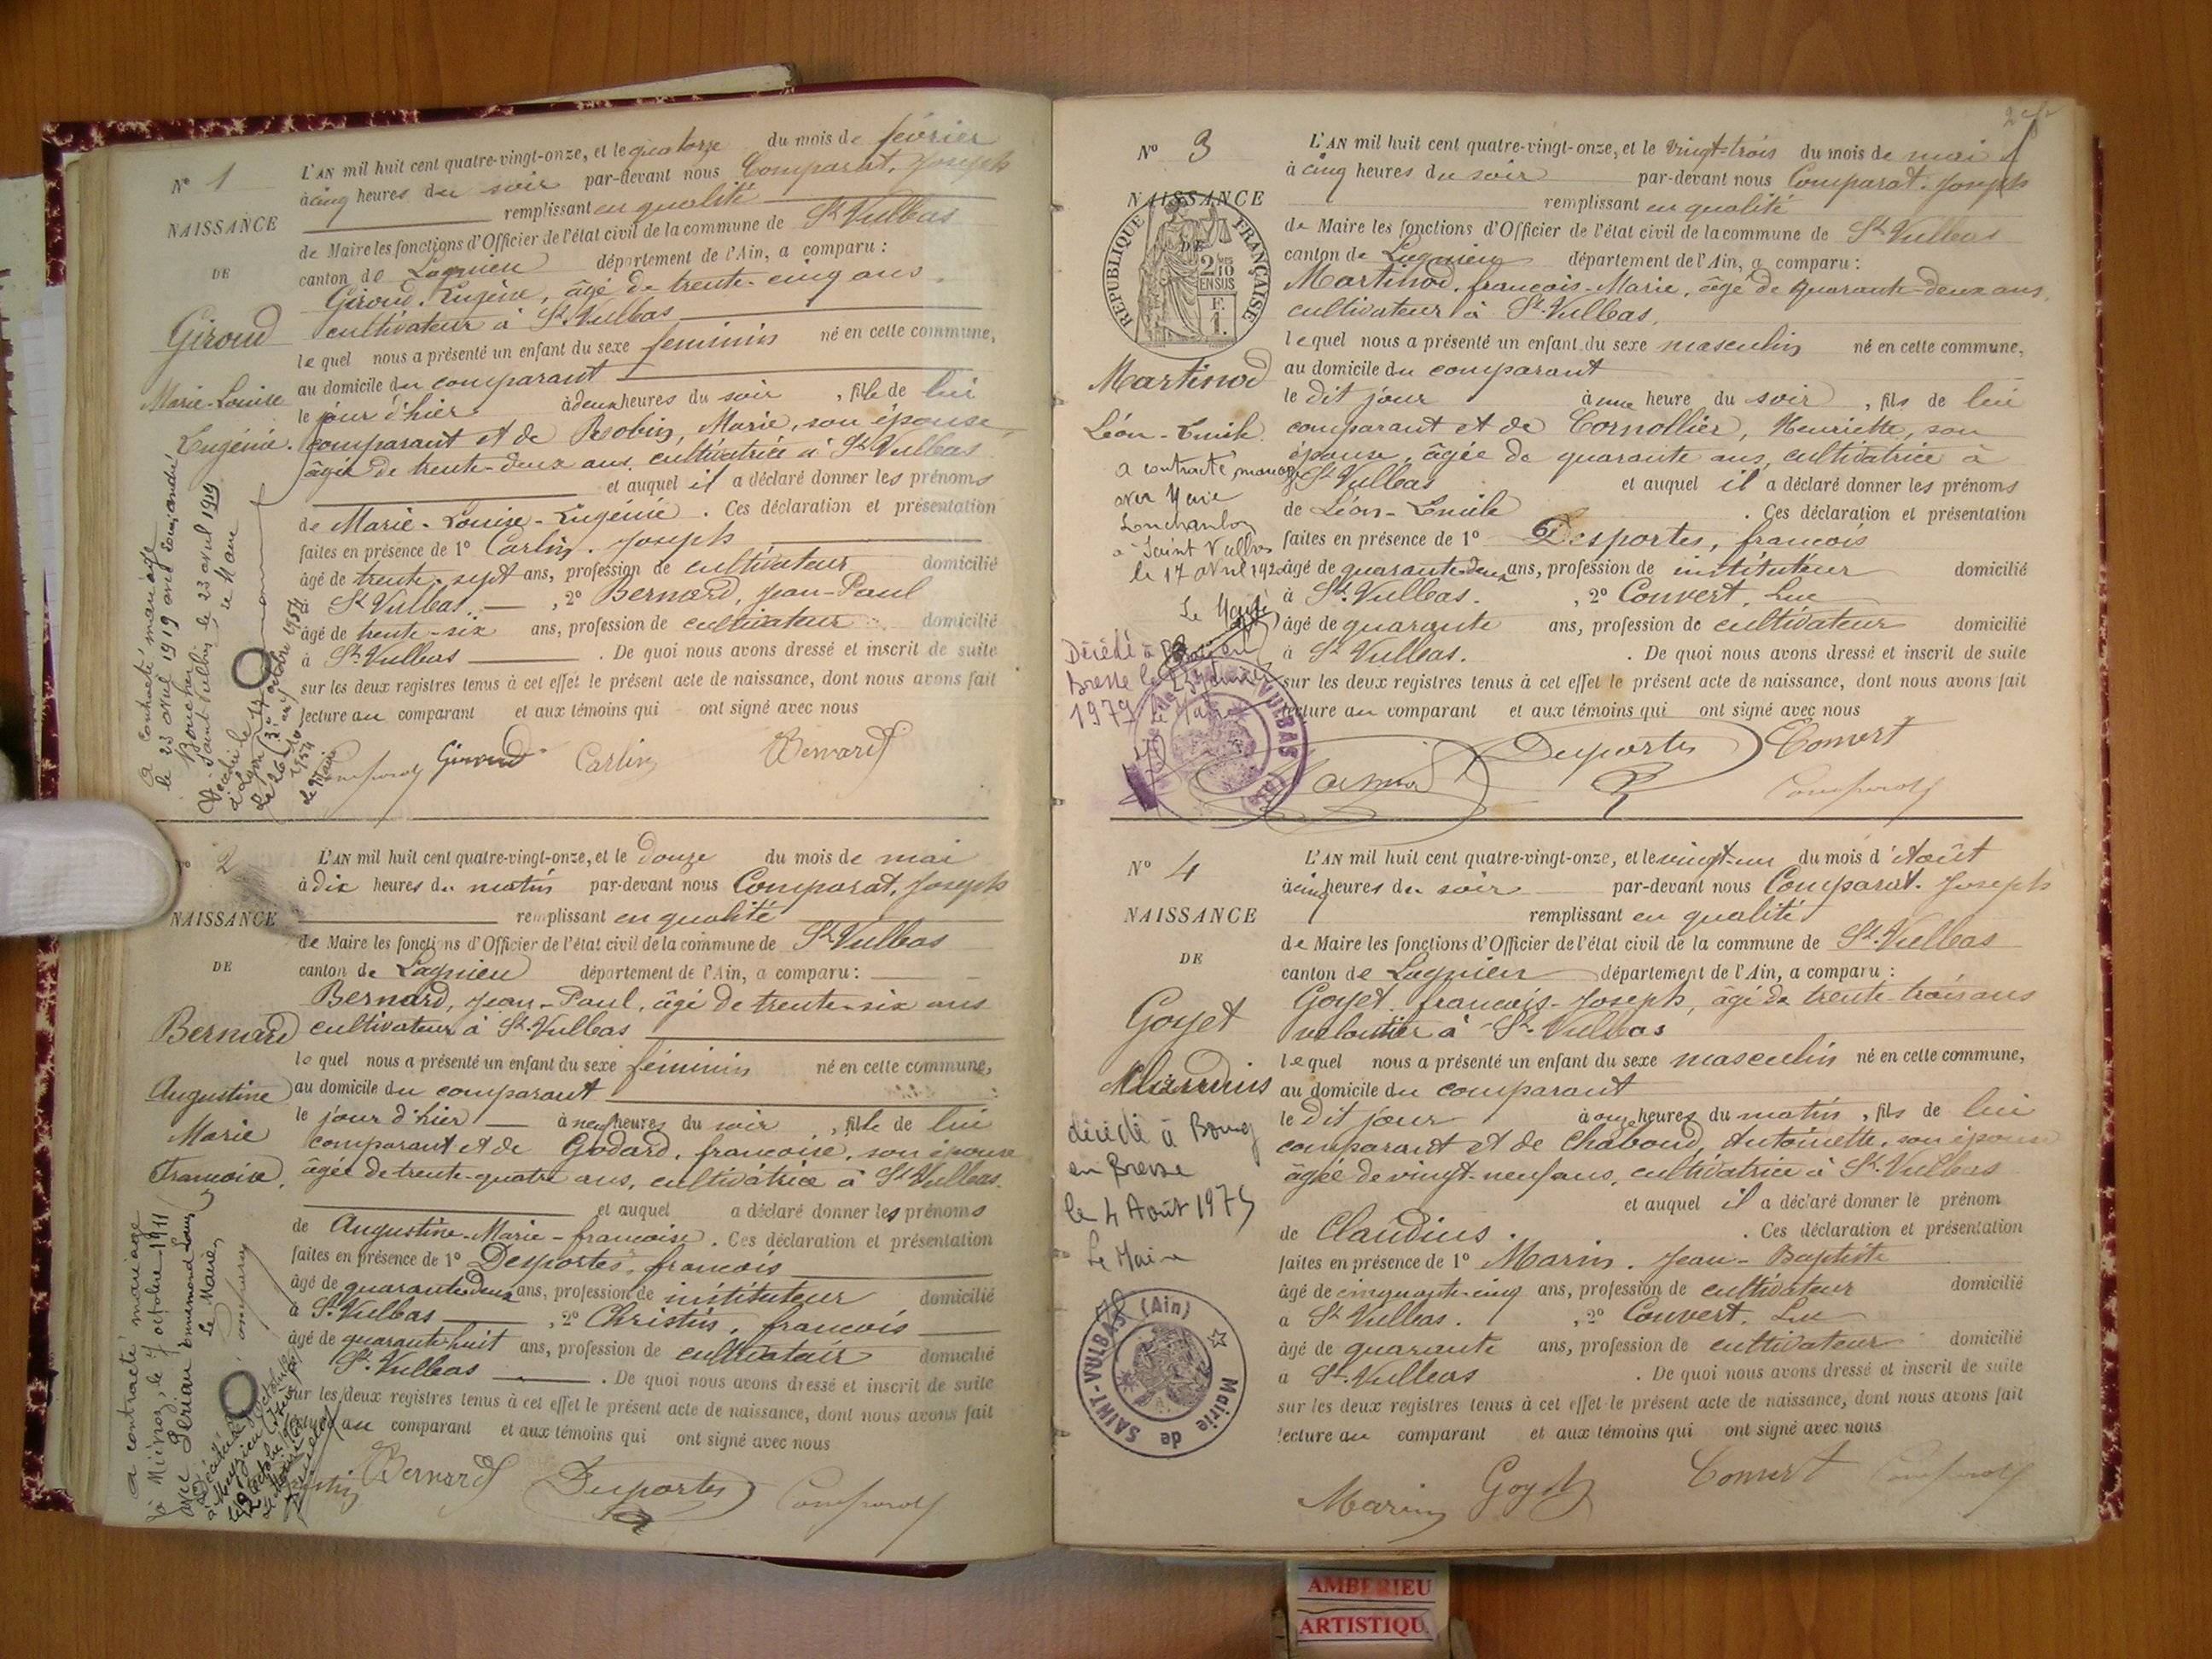 N° 1
NAISSANCE
DE
Giroud
Marie-Louise
Eugénie.
L'AN mil huit cent quatre-vingt-onze, et le quatorze du mois de février
à cinq heures du soir par-devant nous Comparat, Joseph
remplissant en qualité
de Maire les fonctions d'Officier de l'état civil de la commune de St Vulbas
canton de Lagnieu département de l'Ain, a comparu :
Giroud, Eugène, âgé de trente-cinq ans
cultivateur à St Vulbas
lequel nous a présenté un enfant du sexe féminin né en cette commune,
au domicile du comparant
le jour d'hier à deux heures du soir, fille de lui
comparant et de Robin, Marie, son épouse
âgée de trente-deux ans, cultivatrice à St Vulbas
et auquel il a déclaré donner les prénoms
de Marie-Louise-Eugénie. Ces déclaration et présentation
faites en présence de 1° Carlin, Joseph
âgé de trente-sept ans, profession de cultivateur domicilié
à St Vulbas, 2° Bernard, Jean-Paul
âgé de trente-six ans, profession de cultivateur domicilié
à St Vulbas. De quoi nous avons dressé et inscrit de suite
sur les deux registres tenus à cet effet le présent acte de naissance, dont nous avons fait
lecture au comparant et aux témoins qui ont signé avec nous
Comparat Giroud Carlin Bernard
a contracté mariage
le 23 avril 1919 avec
Saint Vulbas, le 23 avril 1919
le Maire
Décédée
à Lyon
le 26
1954
le Maire
2
NAISSANCE
DE
Bernard
Augustine
Marie
Françoise.
L'AN mil huit cent quatre-vingt-onze, et le douze du mois de mai
à dix heures du matin par-devant nous Comparat, Joseph
remplissant en qualité
de Maire les fonctions d'Officier de l'état civil de la commune de St Vulbas
canton de Lagnieu département de l'Ain, a comparu :
Bernard, Jean-Paul, âgé de trente-six ans
cultivateur à St Vulbas
lequel nous a présenté un enfant du sexe féminin né en cette commune,
au domicile du comparant
le jour d'hier à neuf heures du soir, fille de lui
comparant et de Godard, françoise, son épouse
âgée de trente-quatre ans, cultivatrice à St Vulbas.
et auquel a déclaré donner les prénoms
de Augustine-Marie-françoise. Ces déclaration et présentation
faites en présence de 1° Desportes, françois
âgé de quarante-deux ans, profession de instituteur domicilié
à St Vulbas, 2° Christin, françois
âgé de quarante-huit ans, profession de cultivateur domicilié
St Vulbas. De quoi nous avons dressé et inscrit de suite
sur les deux registres tenus à cet effet le présent acte de naissance, dont nous avons fait
lecture au comparant et aux témoins qui ont signé avec nous
Christin Bernard Desportes Comparat
a contracté mariage
le 7 octobre 1911
avec
Le Maire,
N° 3
NAISSANCE
DE
RÉPUBLIQUE FRANÇAISE
2/10 EN SUS
F. 1.
Martinod
Léon-Emile.
a contracté mariage
avec Marie
à Saint Vulbas
le 17 avril 192
Le Maire
Décédé à
Bresse le
1979
Le Maire
L'AN mil huit cent quatre-vingt-onze, et le vingt-trois du mois de mai
à cinq heures du soir par-devant nous Comparat, Joseph
remplissant en qualité
de Maire les fonctions d'Officier de l'état civil de la commune de St Vulbas
canton de Lagnieu département de l'Ain, a comparu :
Martinod, françois-Marie, âgé de quarante-deux ans,
cultivateur à St Vulbas,
lequel nous a présenté un enfant du sexe masculin né en cette commune,
au domicile du comparant
le dit jour à une heure du soir, fils de lui
comparant et de Cornollier, Henriette, son
épouse, âgée de quarante ans, cultivatrice à
St Vulbas et auquel il a déclaré donner les prénoms
de Léon-Emile. Ces déclaration et présentation
faites en présence de 1° Desportes, françois
âgé de quarante-deux ans, profession de instituteur domicilié
à St Vulbas., 2° Convert, Luc
âgé de quarante ans, profession de cultivateur domicilié
à St Vulbas. De quoi nous avons dressé et inscrit de suite
sur les deux registres tenus à cet effet le présent acte de naissance, dont nous avons fait
lecture au comparant et aux témoins qui ont signé avec nous
Martinod Desportes Convert
Comparat
N° 4
NAISSANCE
DE
Goyet
Claudius
décédé à Bourg
en Bresse
le 4 Août 1975
Le Maire
Mairie de SAINT-VULBAS (Ain)
L'AN mil huit cent quatre-vingt-onze, et le vingt-un du mois d'Août
à cinq heures du soir par-devant nous Comparat, Joseph
remplissant en qualité
de Maire les fonctions d'Officier de l'état civil de la commune de St Vulbas
canton de Lagnieu département de l'Ain, a comparu :
Goyet, françois-Joseph, âgé de trente-trois ans
à St Vulbas
lequel nous a présenté un enfant du sexe masculin né en cette commune,
au domicile du comparant
le dit jour à onze heures du matin, fils de lui
comparant et de Chaboud, Antoinette, son épouse
âgée de vingt-neuf ans, cultivatrice à St Vulbas
et auquel il a déclaré donner le prénom
de Claudius. Ces déclaration et présentation
faites en présence de 1° Marin, Jean-Baptiste
âgé de cinquante-cinq ans, profession de cultivateur domicilié
à St Vulbas., 2° Convert, Luc
âgé de quarante ans, profession de cultivateur domicilié
à St Vulbas. De quoi nous avons dressé et inscrit de suite
sur les deux registres tenus à cet effet le présent acte de naissance, dont nous avons fait
lecture au comparant et aux témoins qui ont signé avec nous
Marin Goyet Convert Comparat
AMBERIEU
ARTISTIQU